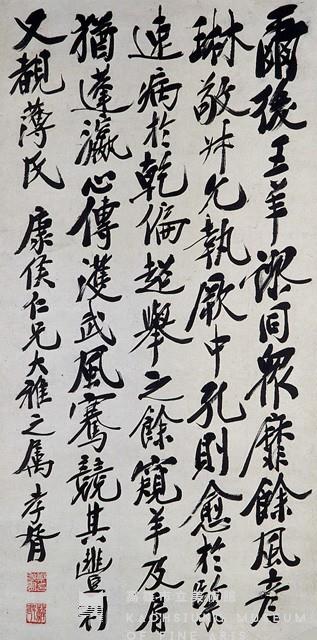 爾後王羊謬同眾靡餘風彥
琳敬叔允執厥中孔則愈於緊
速病於乾偏超舉之餘窺羊及肩
猶蓬瀛心傳濩武風騫競其豐利
又覩薄氏 康侯仁兄大雅之屬 孝胥
高雄市立美術館
KAOHSIUNG MUSEUM
OF FINE ARTS